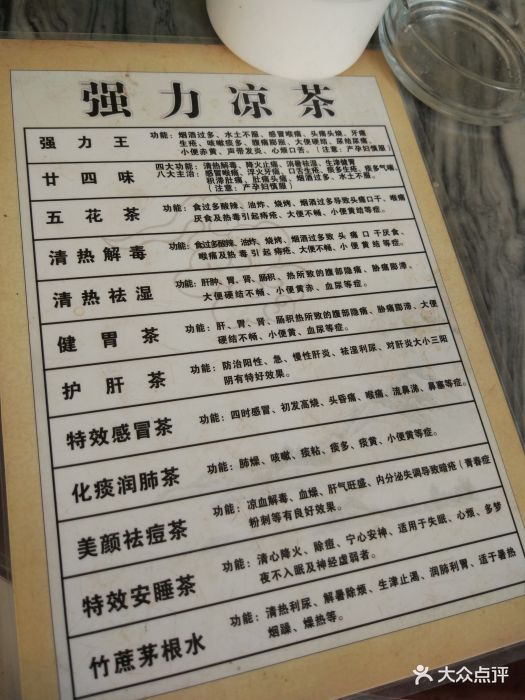 强力凉茶
强力王
功能：烟酒过多、水土不服、感冒喉痛、头痛头烧、牙痛
生疮、咳嗽痰多、腹痛膨胀、大便硬结、尿结尿痛、
小便赤黄、声带发炎、心烦口苦。（注意：产孕妇慎服）
廿四味
四大功能：清热解毒、降火止痛、消暑祛湿、生津健胃
八大主治：感冒喉痛、浮火牙痛、口舌生疮、痰多生疮、痰多气喘、
积滞肚痛、肚痛头痛、烟酒过多、水土不服。
（注意：产孕妇慎服）
五花茶
功能：食过多酸辣、油炸、烧烤、烟酒过多导致头痛口干、喉痛
厌食及热毒引起痔疮、大便不畅、小便黄结等症。
清热解毒
功能：食过多酸辣、油炸、烧烤、烟酒过多致头痛口干厌食、
喉痛及热毒引起痔疮、大便不畅、小便黄结等症。
清热祛湿
功能：肝肿、胃、肾、肠积、热所致的腹部隐痛、胁痛膨滞、
大便硬结不畅、小便黄赤、血尿等症。
健胃茶
功能：肝、胃、肾、肠积热所致的腹部隐痛、胁痛膨滞、大便
硬结不畅、小便黄、血尿等症。
护肝茶
功能：防治阳性、急、慢性肝炎、祛湿利尿、对肝炎大小三阳
阴有特好效果。
特效感冒茶
功能：四时感冒、初发高烧、头昏痛、喉痛、流鼻涕、鼻塞等症。
化痰润肺茶
功能：肺燥、咳嗽、痰粘、痰多、痰黄、小便黄等症。
美颜祛痘茶
功能：凉血解毒、血燥、肝气旺盛、内分泌失调导致暗疮（青春症
粉刺等有良好效果。
特效安睡茶
功能：清心降火、除痘、宁心安神、适用于失眠、心烦、多梦
夜不入眠及神经虚弱者。
竹蔗茅根水
功能：清热利尿、解暑除烦、生津止渴、润肺利胃、适于暑热
烟躁、燥热等。
大众点评